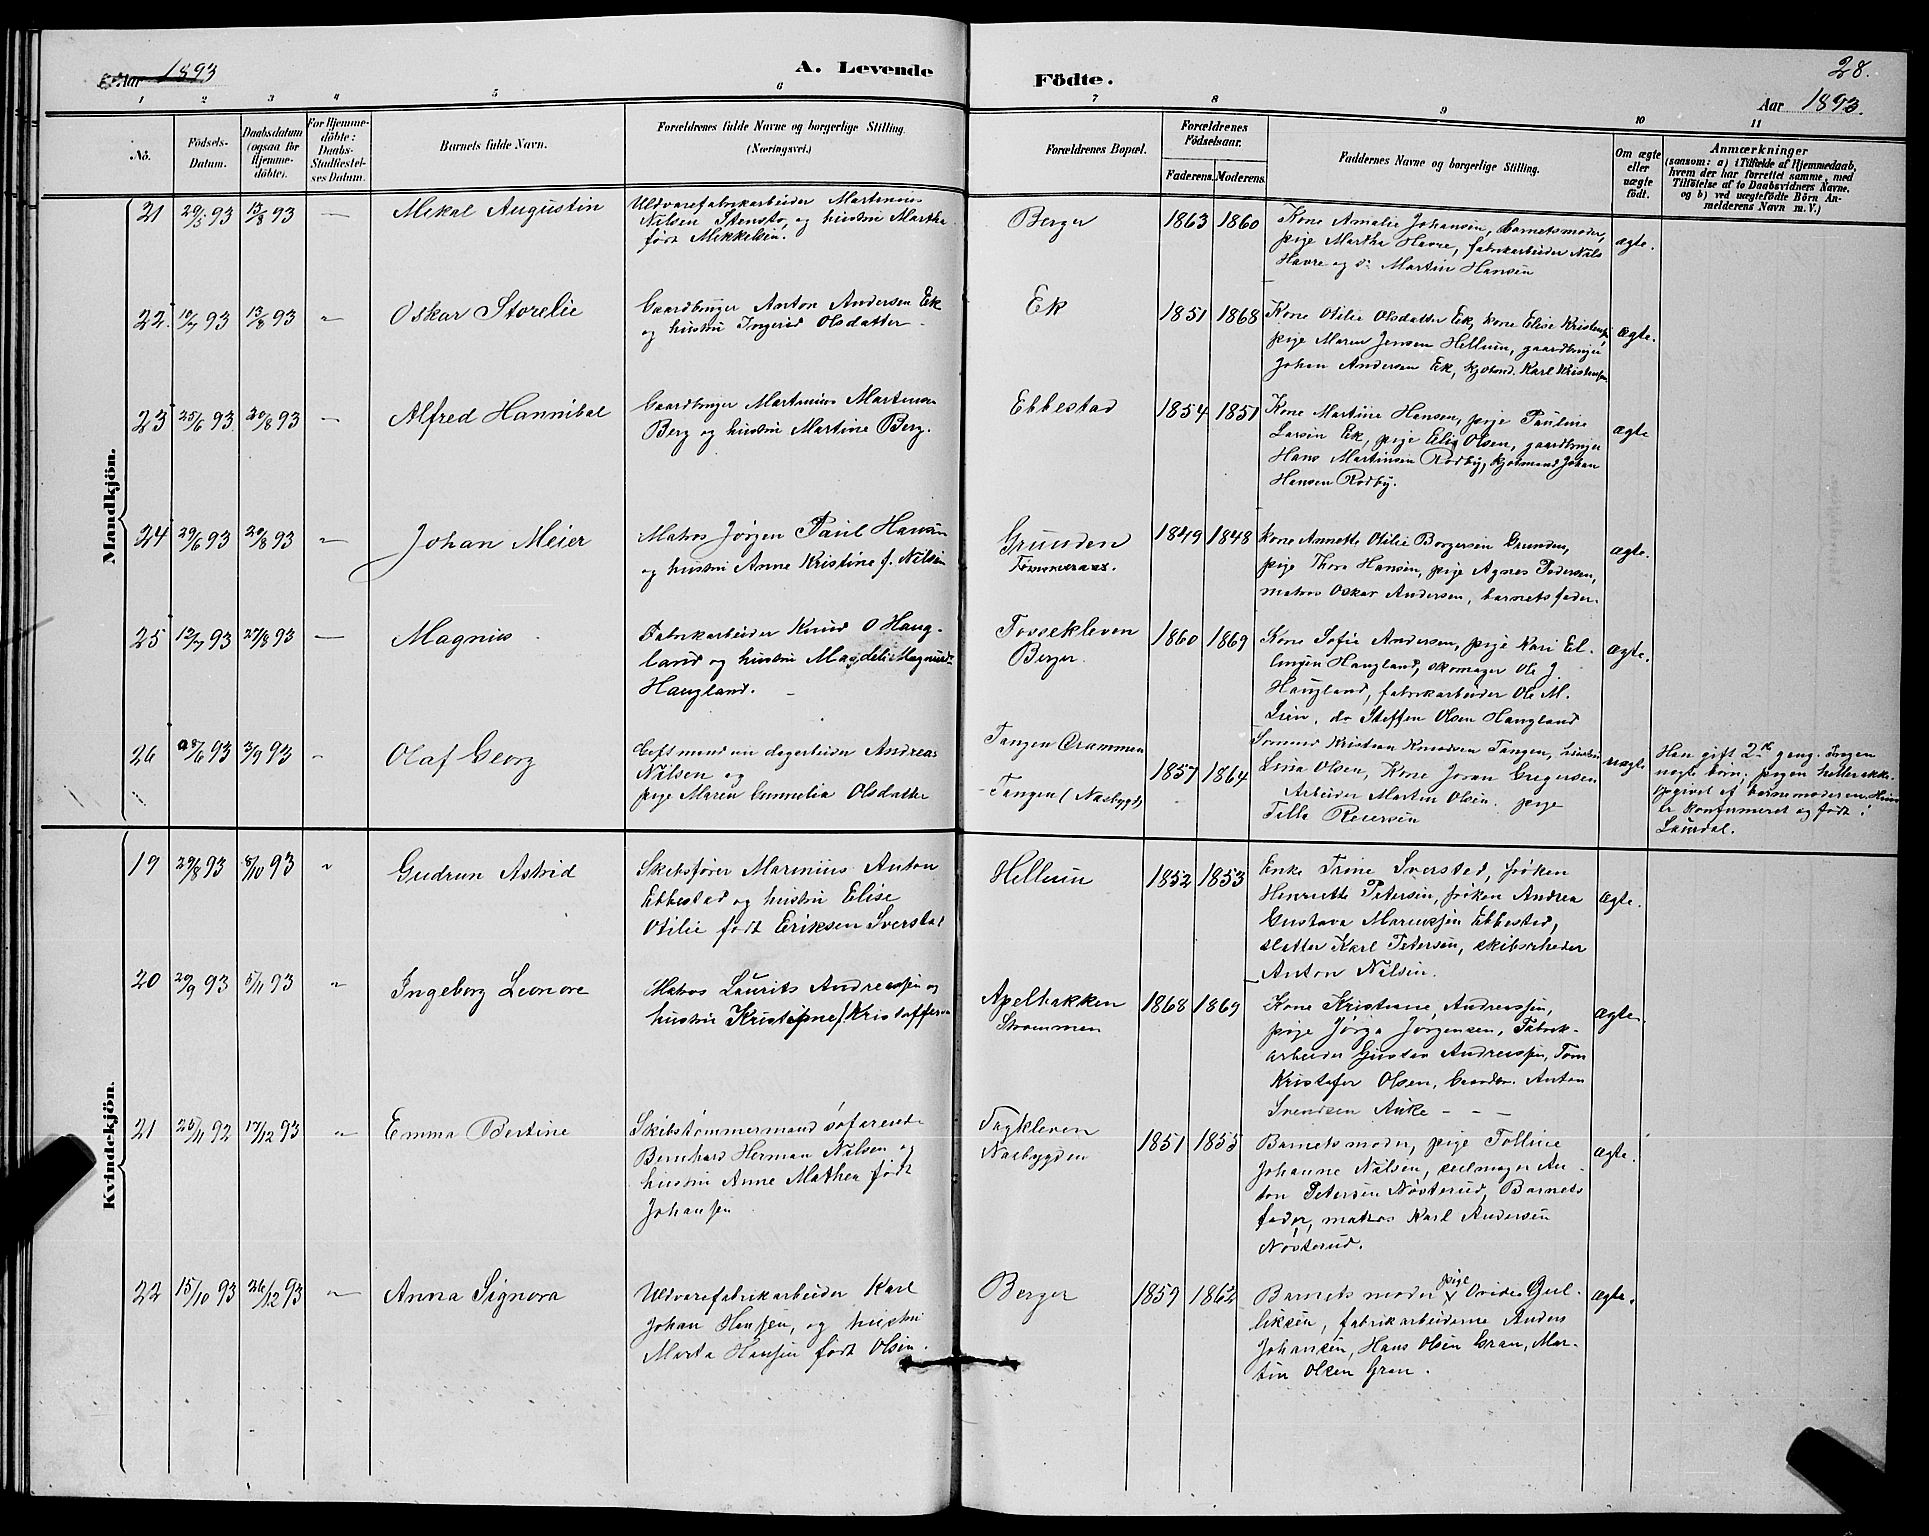 Aar 1893
A. Levende
Födte.
28.
Aar 1893.
1 2 3 4 5 6 7 8 9 10 11
No.
Födsels-
Datum.
Daabsdatum
(ogsaa for
Hjemme-
döbte).
For Hjemme-
döbte:
Daabs-
Stadfæstel-
ses Datum.
Barnets fulde Navn.
Forældrenes fulde Navne og borgerlige Stilling.
(Næringsvei.)
Forældrenes Bopæl.
Forældrenes
Födselsaar.
Faderens. Moderens.
Faddernes Navne og borgerlige Stilling.
Om ægte
eller
uægte
födt.
Anmærkninger
(saasom: a) i Tilfælde af Hjemmedaab,
hvem der har forrettet samme, med
Tilföielse af to Daabsvidners Navne.
og b) ved uægtefödte Börn An-
melderens Navn m. V.)
Mandkjön.
21 29/5 93 13/8 93 — Mekal Augustin
Uldvarefabrikarbeider Martinius
Nilsen Stensto, og hustru Martha
født Mikkelsen.
Berger 1863 1860
Kone Amalie Johansen, barnetsmoder,
pige Martha Havre, fabrikarbeider Nils
Havre og do Martin Hansen
ægte.
22. 10/7 93 13/8 93 " Oskar Storelie
Gaardbruger Anton Andersen Ek
og hustru Ingerid Olsdatter
Ek 1851 1868
Kone Otilie Olsdatter Ek, kone Elise Kristensen,
pige Maren Jensen Hellum, gaardbruger
Johan Andersen Ek, kjøbmd. Karl Kristensen
ægte.
23 25/6 93 20/8 93 — Alfred Hannibal
Gaardbruger Martinius Martinsen
Berg og hustru Martine Berg.
Ebbestad 1854 1851
Kone Martine Hansen, pige Pauline
Larsen Ek, pige Elis Olsen, gaardbruger
Hans Martinsen Rødby, kjøbmand Johan
Hansen Rødby.
ægte
24 29/6 93 20/8 93 " Johan Meier
Matros Jørgen Paul Hansen
og hustru Anne Kristine f. Nilsen
Grunden
Tømmeraas.
1849 1848
Kone Annette Otilie Borgersen Grunden,
pige Thora Hansen, pige Agnes Pedersen,
matros Oskar Andersen, barnets fader.
ægte.
25 12/7 93 27/8 93 — Magnus
Fabrikarbeider Knud O Haug-
land og hustru Magdeli Magnusd.
Haugland.
Fossekleven
Berger.
1860 1869
Kone Sofie Andersen, pige Kari El-
lingsen Haugland, skomager Ole J.
Haugland, fabrikarbeider Ole M.
Lien, do Steffen Olsen Haugland
ægte.
26 93 3/9 93 " Olaf Georg
Gift mand dagarbeider Andreas
Nilsen og
pige Maren Gunnelia Olsdatter
Tangen Drammen
- Tangen (Nasbygd)
1857 1864
Sømand Kristian Knudsen Tangen, hustru
Lina Olsen, Kone Joran Gregersen
Arbeider Martin Olsen. pige
Tilla Reiersen
uægte
Han gift 2den gang. Ingen
uægte børn; pigen heller ikke.
Opgivet af barnemoderen. Hun
er konfirmeret og født i
Laurdal.
Kvindekjön.
19 29/8 93 8/10 93 " Gudrun Astrid
Skibsfører Marinius Anton
Ebbestad og hustru Elise
Otilie født Eriksen Sverstad
Hellum 1852 1853
Enke Trine Sverstad, frøken
Henriette Petersen, frøken Andrea
Gustava Mariussen Ebbestad,
Karl Pedersen, skibsrheder
Anton Nilsen.
ægte.
20 29/9 93 5/11 93 " Ingeborg Leonore
Matros Laurits Andreassen og
hustru Kristine f. Kristoffersen
Apelhakken
Strømmen
1868 1869
Kone Kristiane Andreassen,
pige Jørga Jørgensen, Fabrik-
arbeider Gustav Andreassen, Tøm
Kristofer Olsen, Gaardbr. Anton
Svendsen Auke — — —
ægte.
21 25/11 92 17/12 93 " Emma Bertine
Skibstømmermand søfarende
Bernhard Herman Nilsen og
hustru Anne Mathea født
Johansen
Fagkleven
Nasbygden
1851 1855
Barnets moder, pige Tolline
Johanne Nilsen, seilmager An-
ton Petersen Nøsterud, Barnets
fader, matros Karl Andersen
Nøsterud.
ægte.
22 15/10 93 26/12 93 " Anna Signora
Uldvarefabrikarbeider Karl
Johan Hansen, og hustru
Marta Hansen født Olsen.
Berger 1859 1862
Barnets moder pige Ovidia Gul-
liksen, fabrikarbeiderne Anders
Johansen, Hans Olsen Gran, Mar-
tin Olsen Gran.
ægte.